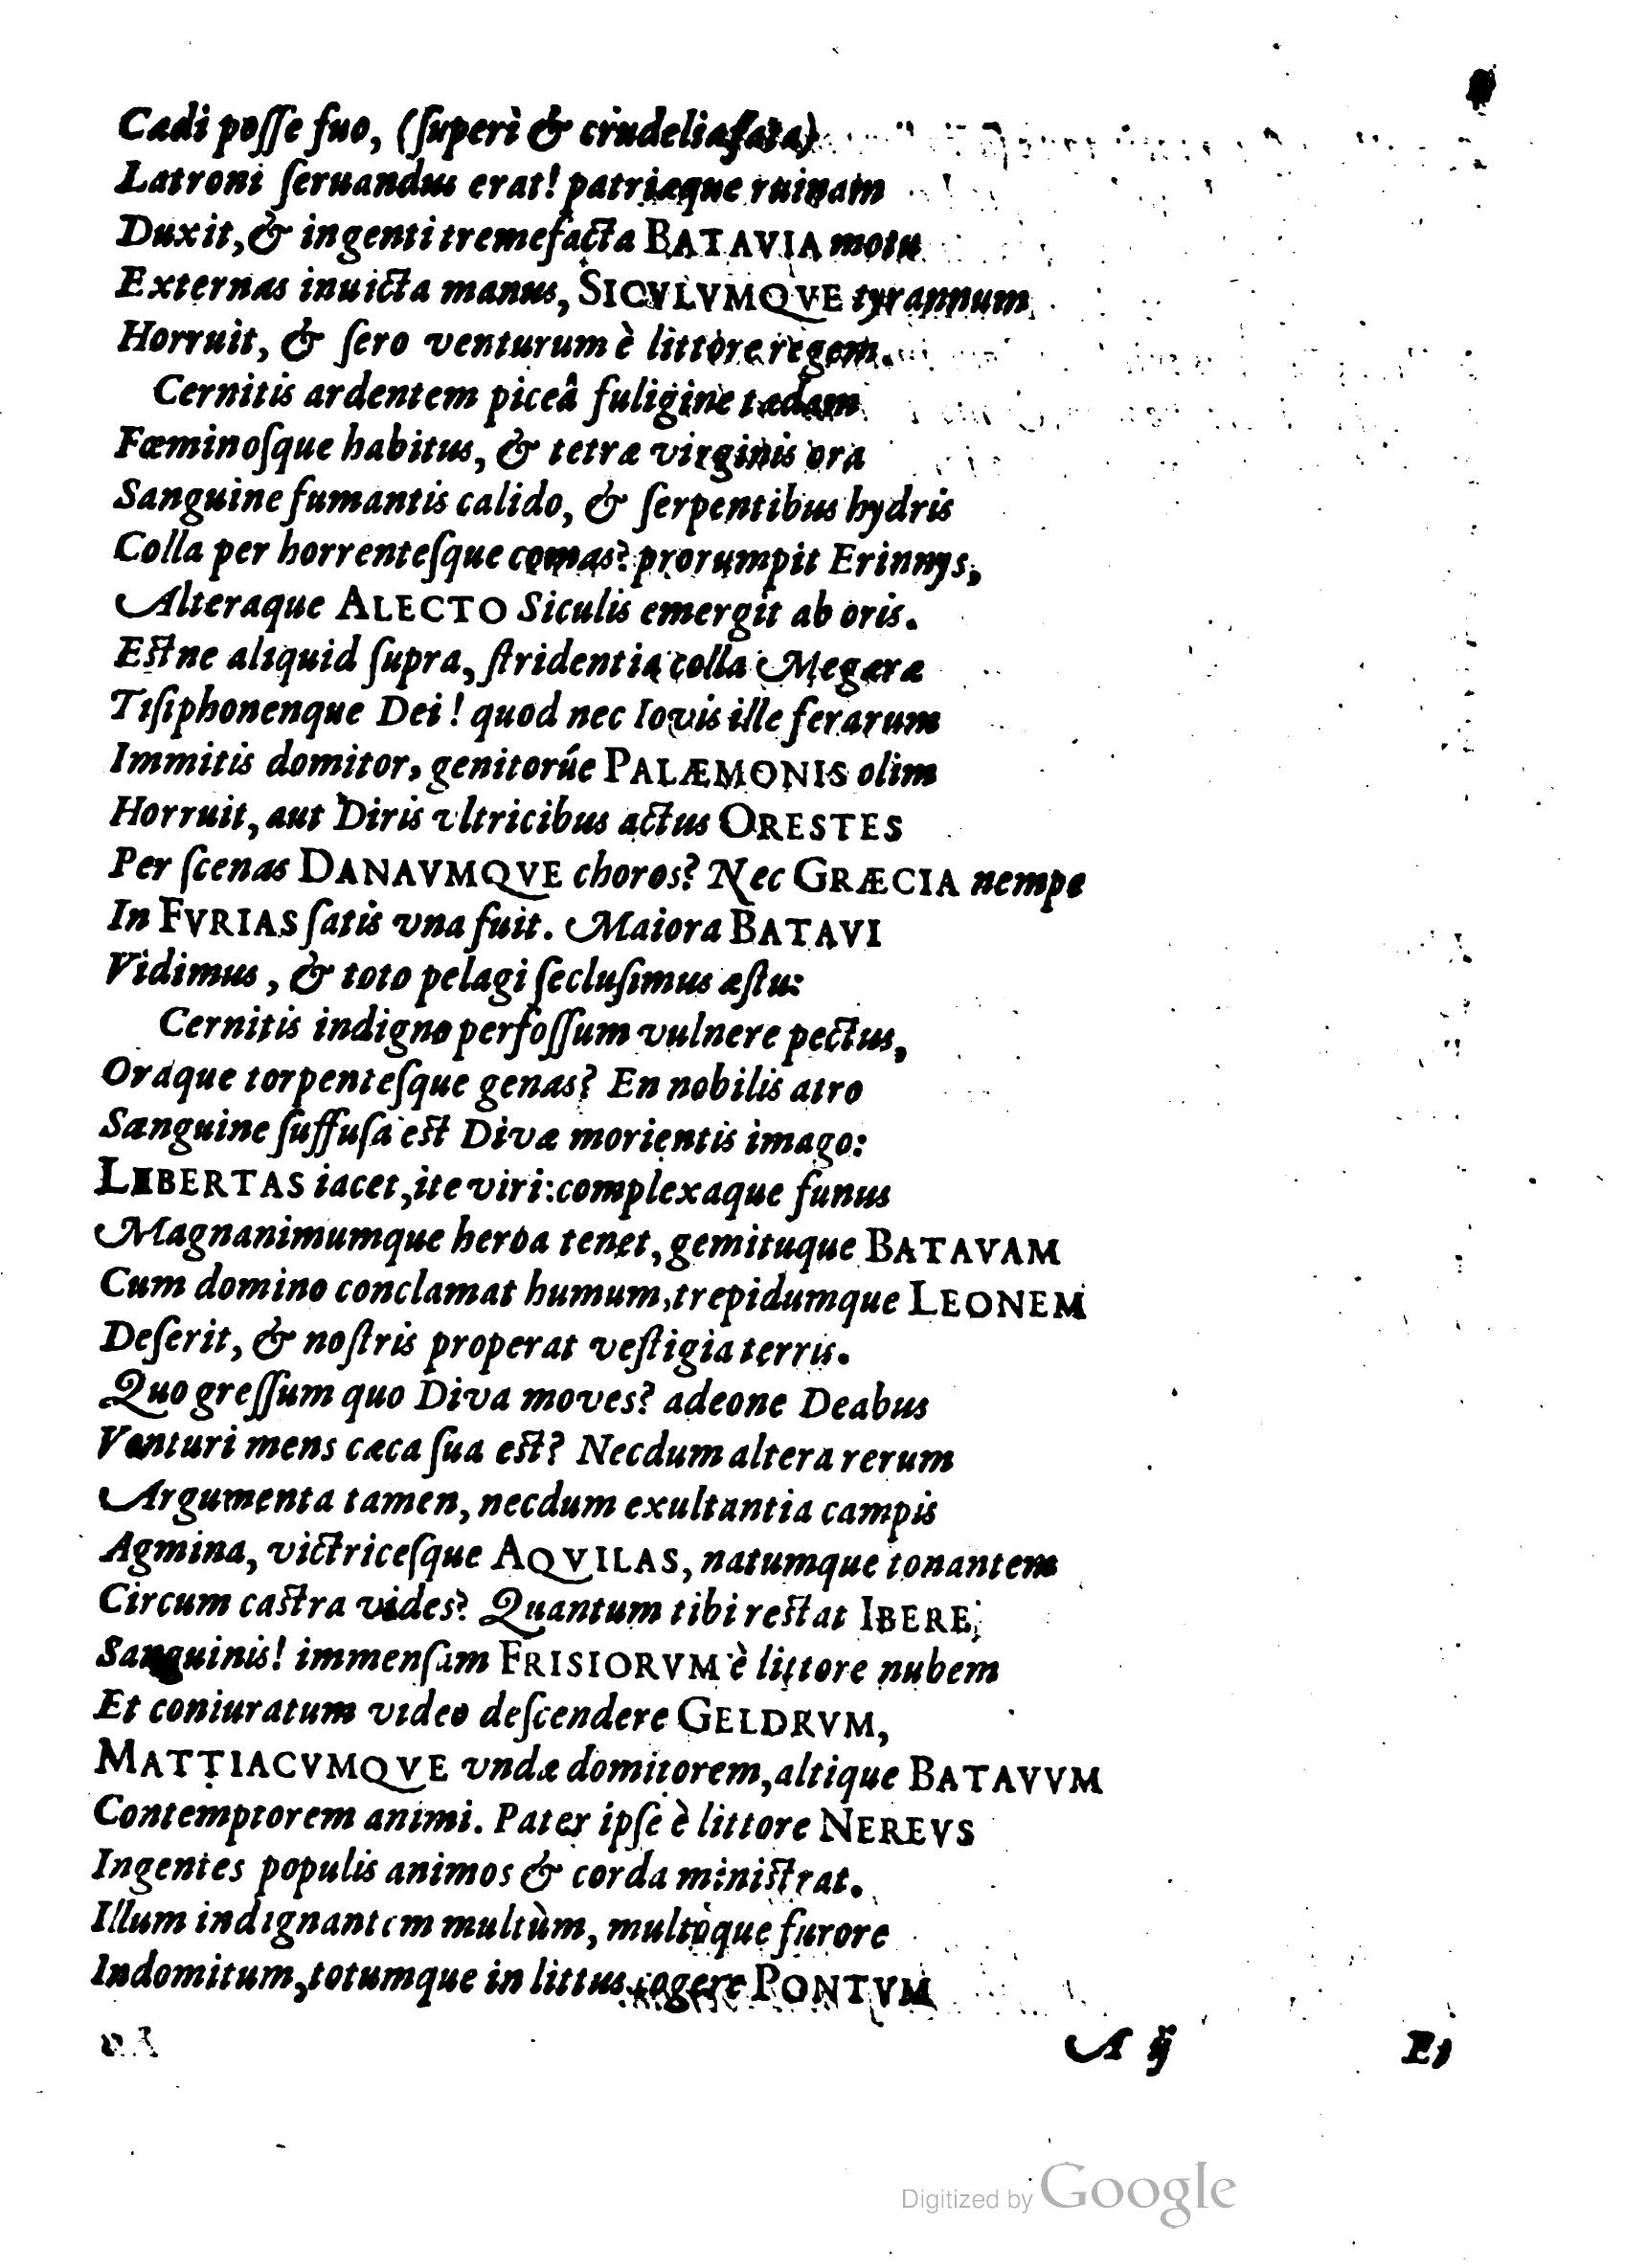 Cædi posse suo, (superì & crudelia fata)
Latroni seruandus erat! patriæque ruinam
Duxit, & ingenti tremefacta BATAVIA motu
Externas inuicta manus, SICVLVMQVE tyrannum
Horruit, & sero venturum è littore regem.
Cernitis ardentem piceâ fuligine tædam
Fœminosque habitus, & tetræ virginis ora
Sanguine fumantis calido, & serpentibus hydris
Colla per horrentesque comas? prorumpit Erinnys,
Alteraque ALECTO Siculis emergit ab oris.
Estne aliquid supra, stridentia colla Megæræ
Tisiphonenque Dei! quod nec Iovis ille ferarum
Immitis domitor, genitorúe PALÆMONIS olim
Horruit, aut Diris vltricibus actus ORESTES
Per scenas DANAVMQVE choros? Nec GRÆCIA nempe
In FVRIAS satis vna fuit. Maiora BATAVI
Vidimus, & toto pelagi seclusimus æstu:
Cernitis indigno perfossum vulnere pectus,
Oraque torpentesque genas? En nobilis atro
Sanguine suffusa est Divæ morientis imago:
LIBERTAS iacet, ite viri: complexaque funus
Magnanimumque heroa tenet, gemituque BATAVAM
Cum domino conclamat humum, trepidumque LEONEM
Deserit, & nostris properat vestigia terris.
Quo gressum quo Diva moves? adeone Deabus
Venturi mens cæca sua est? Necdum altera rerum
Argumenta tamen, necdum exultantia campis
Agmina, victricesque AQVILAS, natumque tonantem
Circum castra vides? Quantum tibi restat IBERE,
Sanguinis! immensam FRISIORVM è littore nubem
Et coniuratum video descendere GELDRVM,
MATTIACVMQVE vndæ domitorem, altique BATAVVM
Contemptorem animi. Pater ipse è littore NEREVS
Ingentes populis animos & corda ministrat.
Illum indignantem multùm, multóque furore
Indomitum, totumque in littus cogere PONTVM
A ij
Digitized by Google